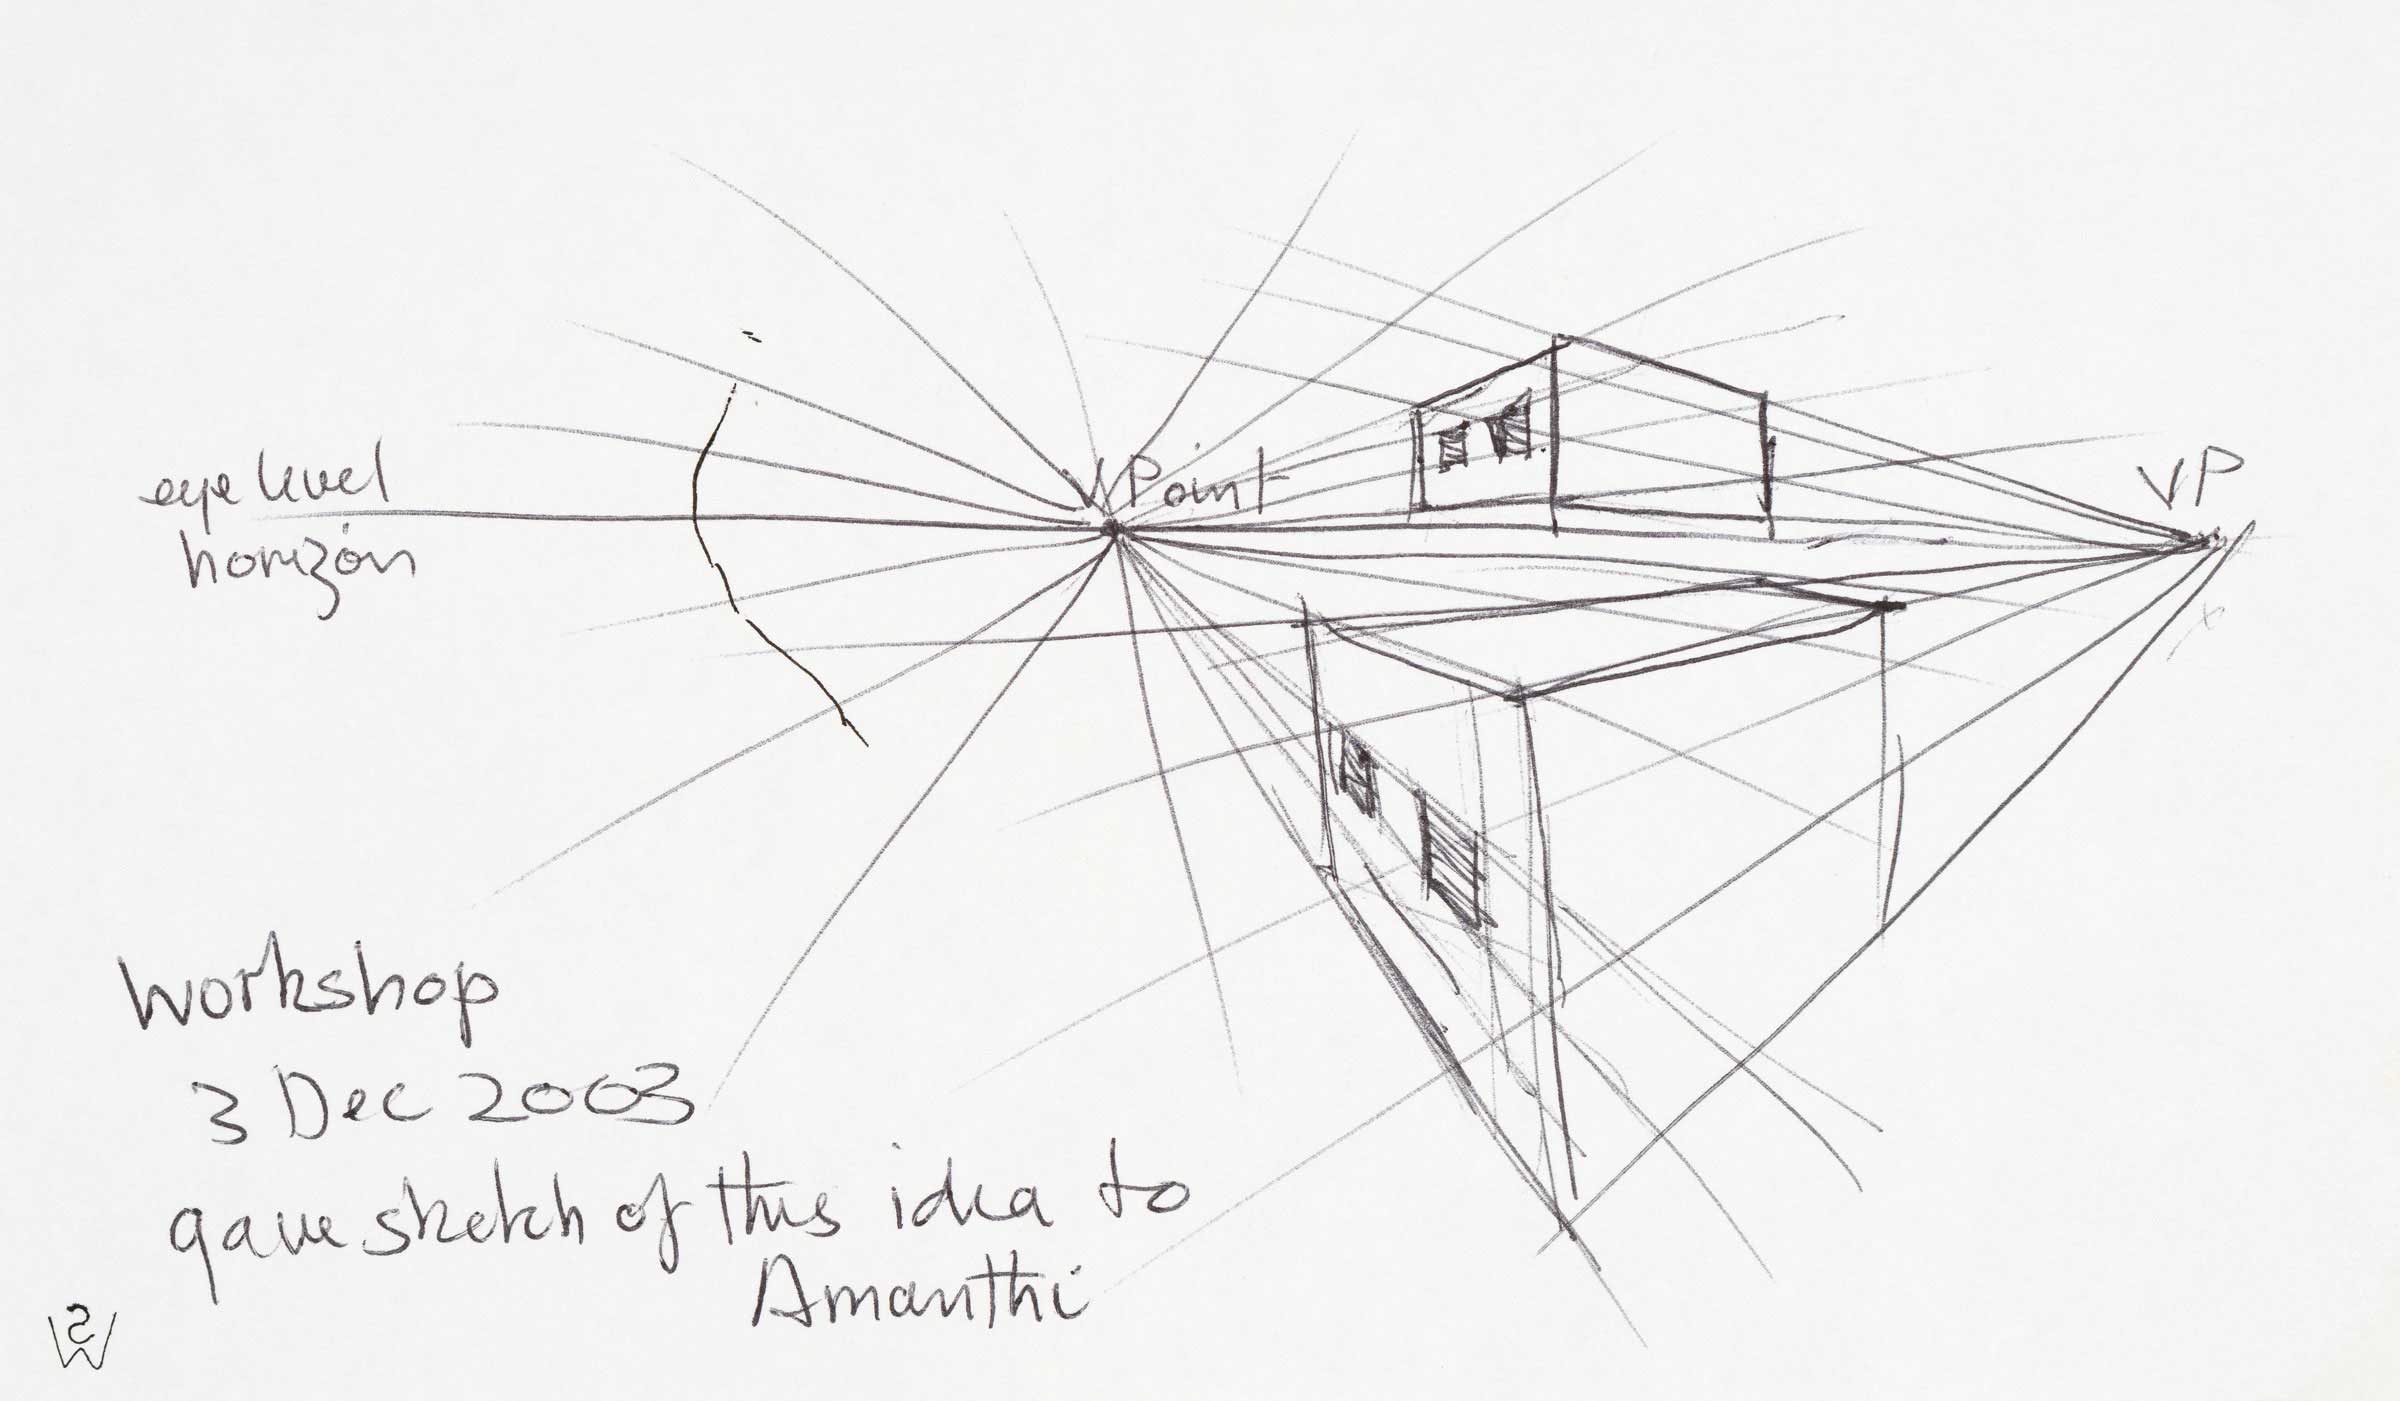 eye level
horizon
V Point
VP
Workshop
3 Dec 2003
gave sketch of this idea to
Amanthi